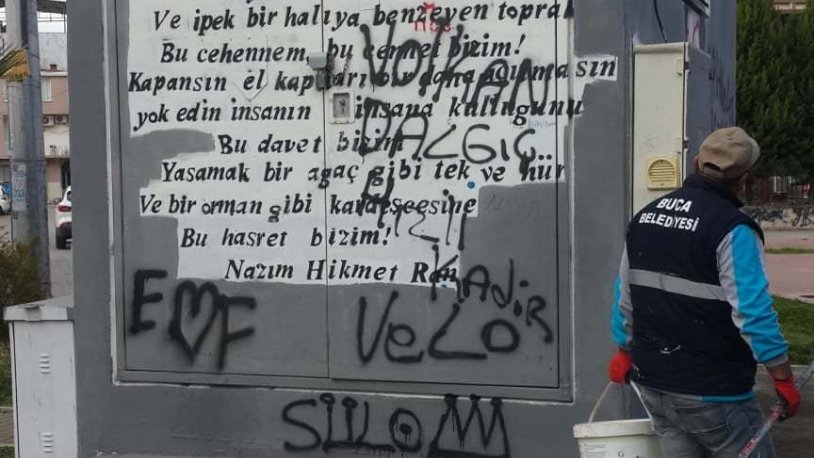 Ve ipek bir halıya benzeyen toprak
Bu cehennem, bu cennet bizim!
Kapansın el kapıları bir daha açılmasın
yok edin insanın insana kulluğunu
Bu davet bizim
Yaşamak bir agaç gibi tek ve hür
Ve bir orman gibi kardeşcesine
Bu hasret bizim!
Nazım Hikmet Ran
VOLKAN
DALGIÇ
KadiR
E F
VeLO
SÜLO
BUCA
BELEDİYESİ